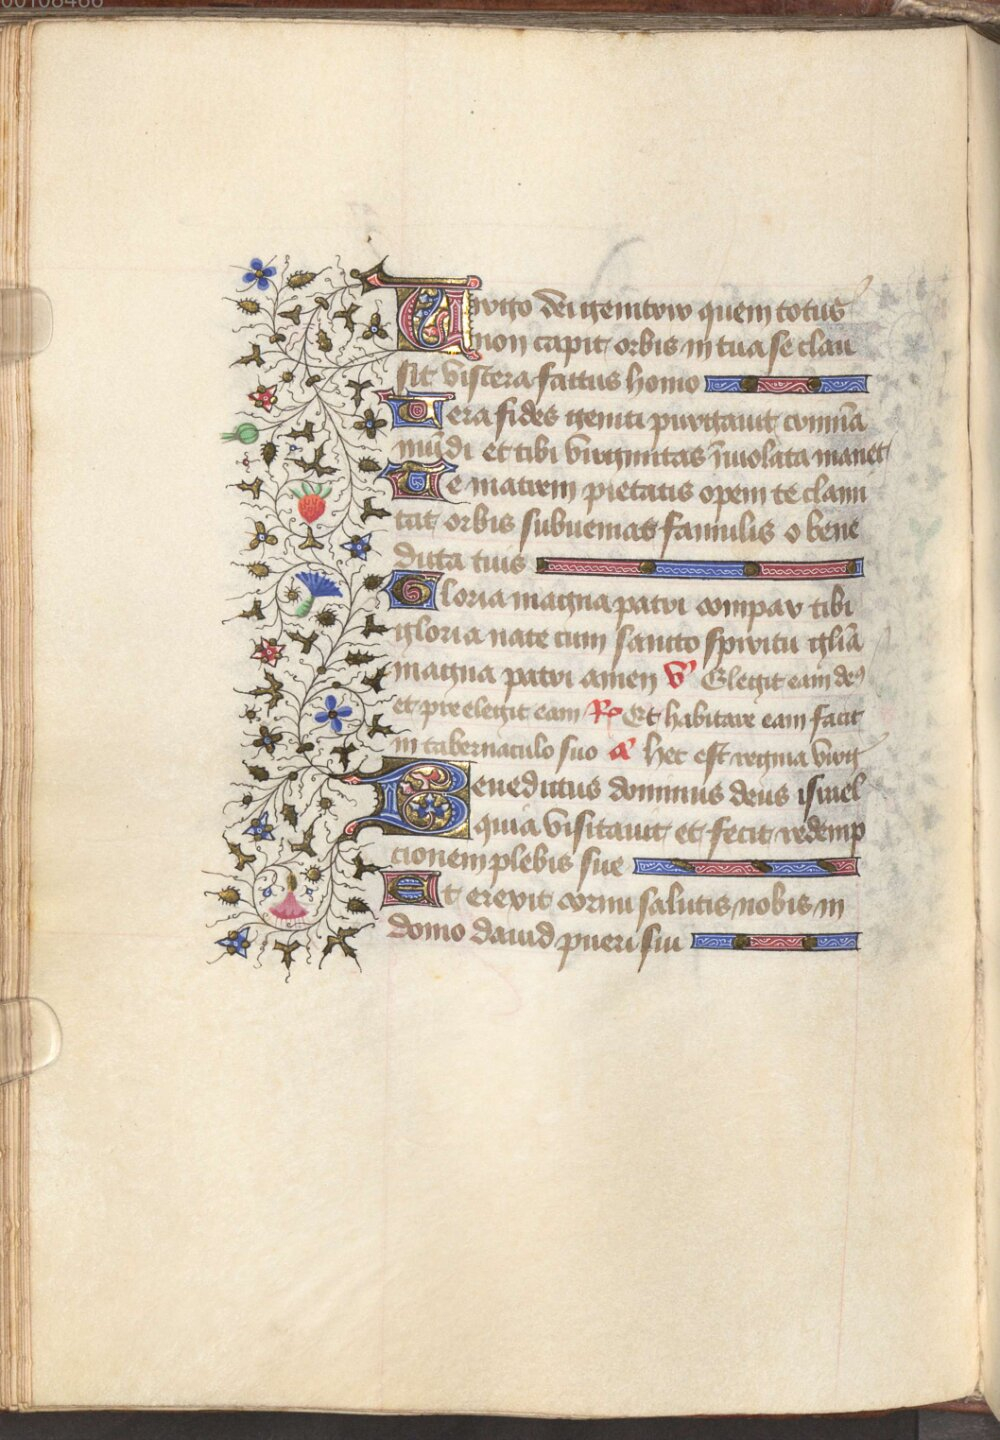 Uirgo dei genitrix quem totus
non capit orbis in tua se clau
sit viscera factus homo
Uera fides geniti purgauit crimīa
mūdi et tibi virginitas īuiolata manet
Te matrem pietatis opem te clami
tat orbis subuenias famulis o bene
dicta tuis
Gloria magna patri compar tibi
gloria nate cum sancto spiritu glīa
magna patri amen V Elegit eam de⁹
et preelegit eam R Et habitare eam facit
in tabernaculo suo a hec est regina virg
Benedictus dominus deus israel
quia visitauit et fecit redemp
cionem plebis sue
Et erexit cornu salutis nobis in
domo dauid pueri sui